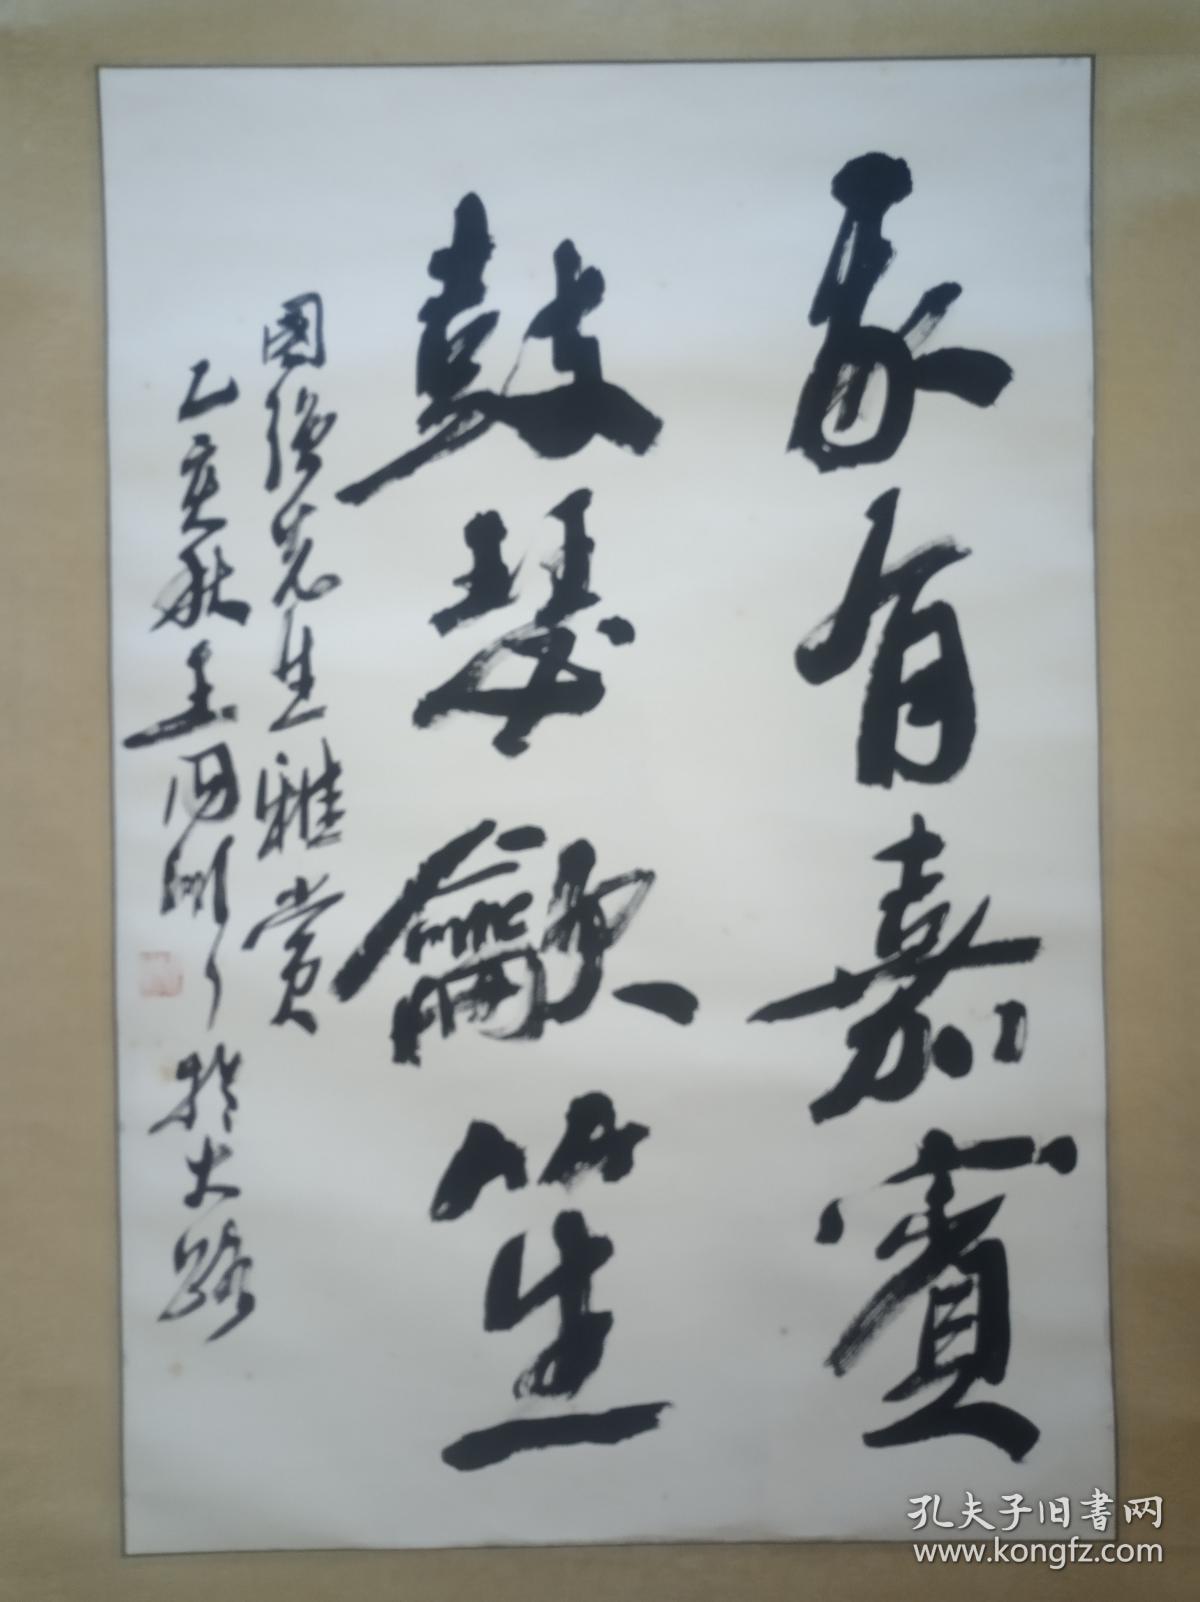 我有嘉賓
鼓瑟龡笙
國強先生雅賞
乙亥秋王同於大路
孔夫子旧書网
www.kongfz.com